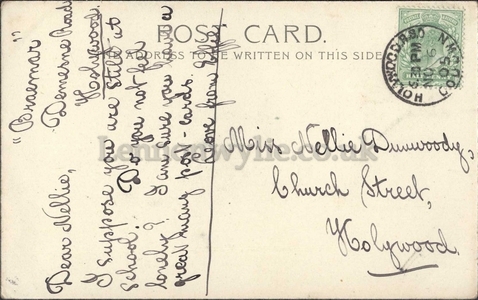 POST CARD.
THE ADDRESS TO BE WRITTEN ON THIS SIDE
"Braemar"
Demesne Road
Holywood.
Dear Nellie,
I suppose you are still at
School. Do you not feel
lonely? I am sure you have a
great many post-cards.
Love from
Miss Nellie Dunwoody,
Church Street,
Holywood.
HOLYWOOD
CO. DOWN
Lennonwylie.co.uk